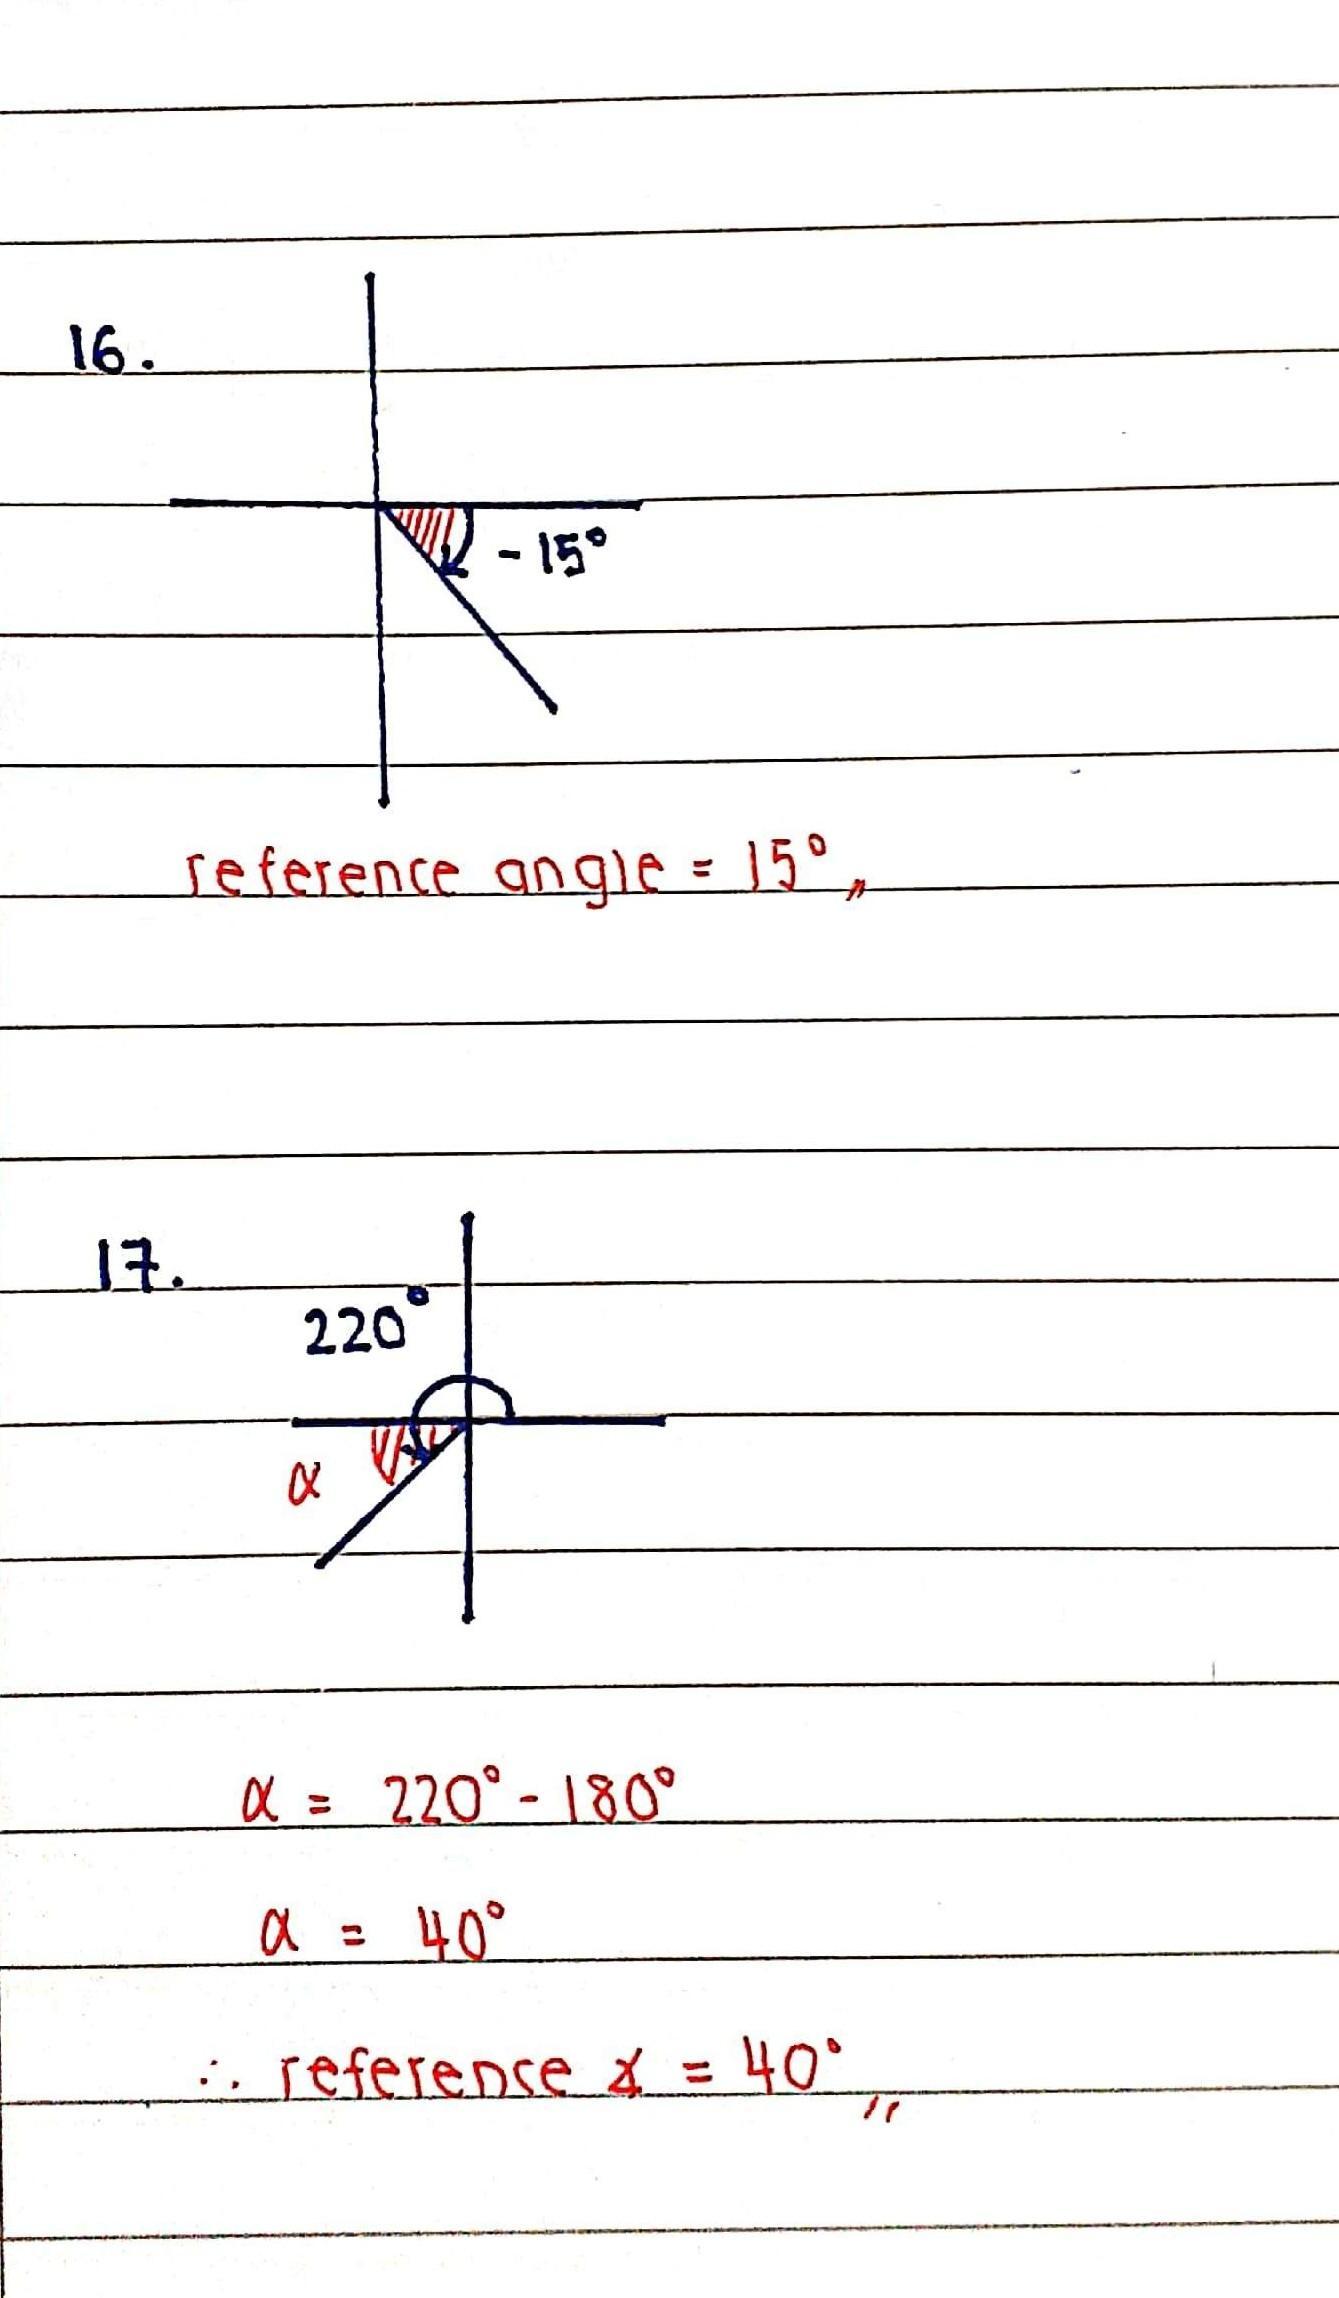 16.
- 15°
reference angle = 15°,,
17.
220°
α
α = 220° - 180°
α = 40°
∴ reference ∡ = 40°,,